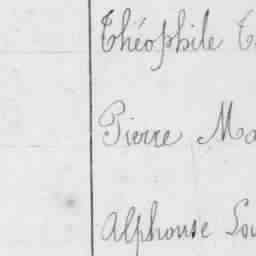 Théophile
Pierre Ma
Alphonse Lou